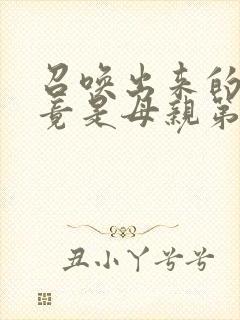 召唤出来的
竟是母親第
丑小丫兮兮